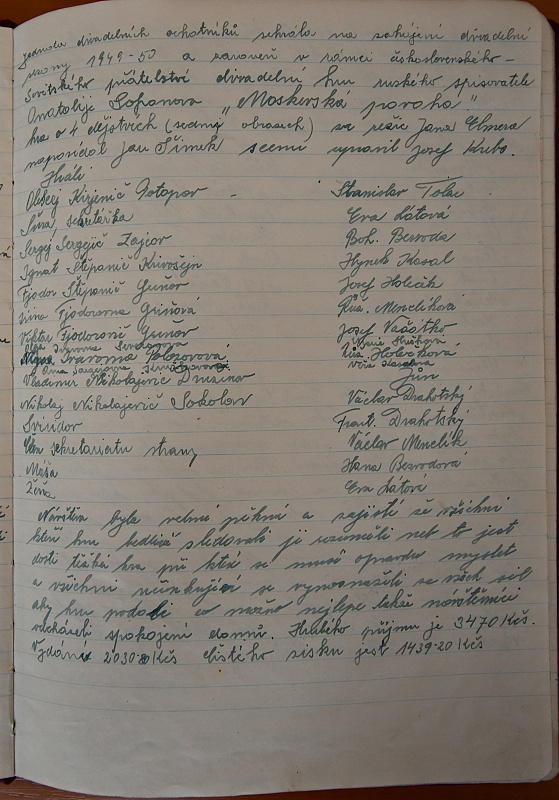 Jednota divadelních ochotníků sehrála na zahájení divadelní
sezony 1949-50 a zároveň v rámci československého-
sovětského přátelství divadelní hru ruského spisovatele
Anatolije Sofanova „Moskevská povaha"
hra o 4 dějstvích (sedmi obrazech) za režie Jana Elnera
napovídal Jan Šimek scenu upravil Josef Kubo.
Hráli
Oleksej Kirjenič Potapov - Stanislav Tolar
Šura, sekretářka Eva Látová
Sergej Sergejič Zajcov Boh. Bezvoda
Ignat Štěpanič Krivošejn Hynek Kasal
Fjodor Štěpanič Guňov Josef Holečák
Irina Fjodorovna Griňová Růž. Menclíková
Viktor Fjodorovič Guňov Josef Vašátko
Olga Ivanovna
Ivanovna Polozovová Lid. Holečková
Anna
Vladimir Nikolajevič Jůn
Nikolaj Nikolajevič Sokolov Václav Drahotský
Sviridov Frant. Drahotský
sekretariatu strany Václav Menclík
Máša Hana Bezvodová
Zina Eva Látová
Návštěva byla velmi pěkná a zajisté se všichni
kteří hru bedlivě sledovali ji rozuměli neb to jest
dosti těžká hra při které se musí opravdu myslet
a všichni účinkující se vynasnažili ze všech sil
aby hru podali co možno nejlépe takže návštěvníci
odcházeli spokojeni domů. Hrubého příjmu je 3470 Kčs.
Vydání 2030·80 Kčs čistého zisku jest 1439·20 Kčs